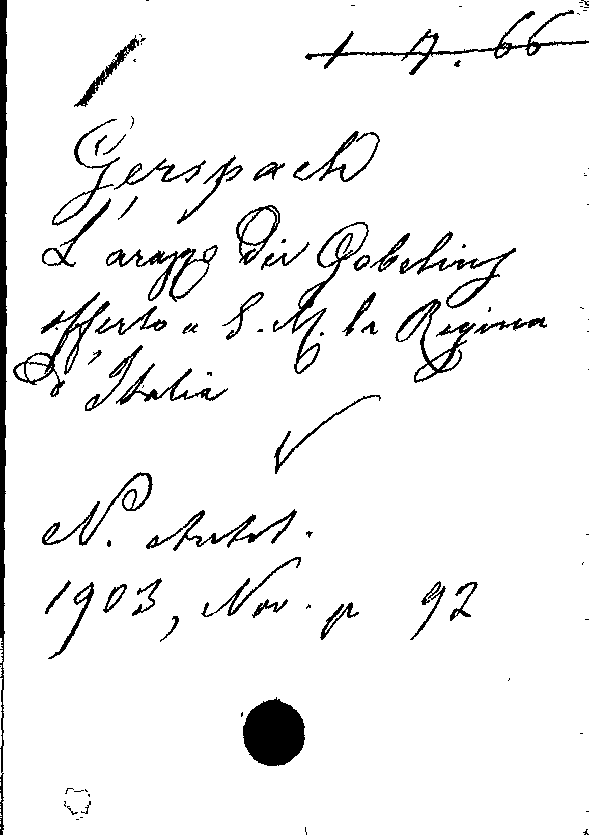 1 7. 66
Gerspach
L'arazzo dei Gobelins
offerto a S. M. la Regina
d'Italia
N. Antol.
1903, Nov. p 92